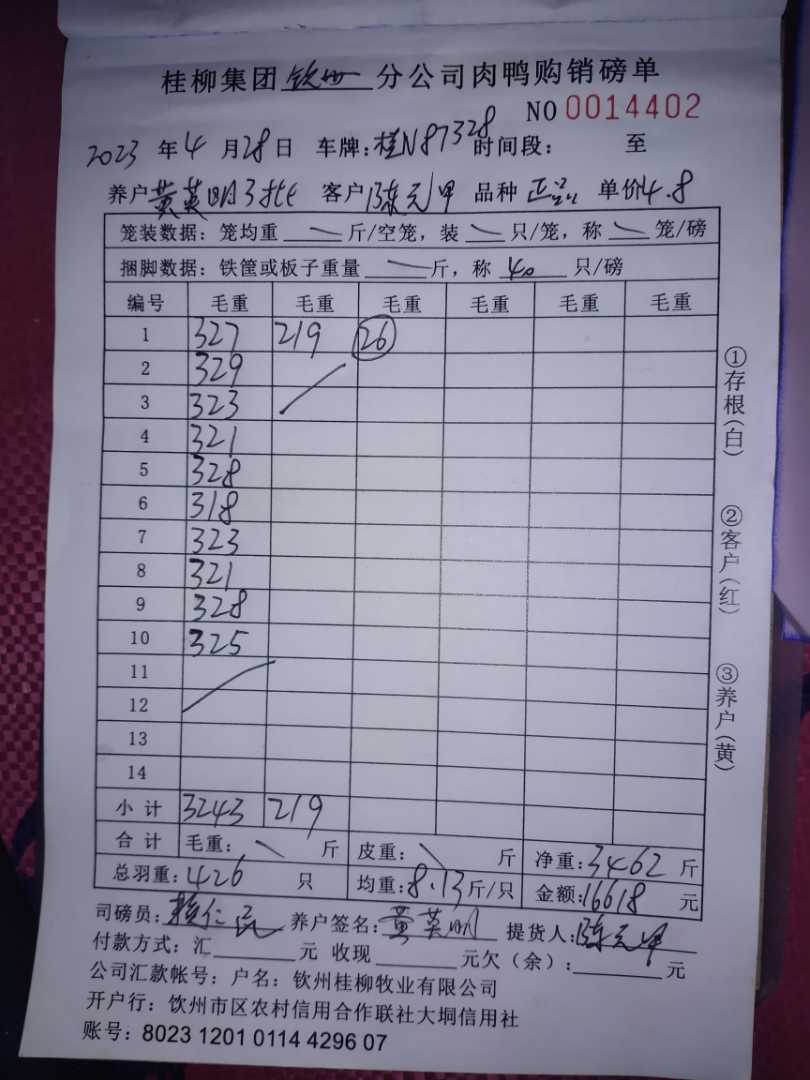 桂柳集团 钦州 分公司肉鸭购销磅单
NO 0014402
2023 年 4 月 28 日 车牌:桂N87328 时间段: 至
养户 黄英明 客户 陈元甲 品种 正品 单价 4.8
笼装数据: 笼均重 斤/空笼, 装 只/笼, 称 笼/磅
捆脚数据: 铁筐或板子重量 斤, 称 40 只/磅
编号 毛重 毛重 毛重 毛重 毛重 毛重
1 327 219 26
2 329
3 323
4 321
5 328
6 318
7 323
8 321
9 328
10 325
11
12
13
14
小计 3243 219
合计 毛重: 斤 皮重: 斤 净重: 3462 斤
总羽重: 426 只 均重: 8.13 斤/只 金额: 16618 元
司磅员: 赖仁民 养户签名: 黄英明 提货人: 陈元甲
付款方式: 汇 元 收现 元欠(余): 元
公司汇款帐号: 户名: 钦州桂柳牧业有限公司
开户行: 钦州市区农村信用合作联社大垌信用社
账号: 8023 1201 0114 4296 07
①存根(白)
②客户(红)
③养户(黄)